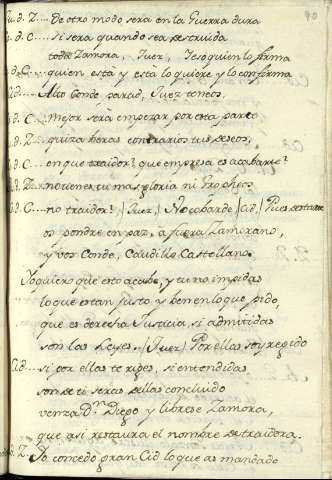 90
d. Z.... De otro modo sera en la Guerra dura
d. C.... si sera quando sea destruida
toda Zamora, Juez, Jesoquien lo forma
d. C.... quien esta y esta lo quiere y lo conforma
Cid.... Alto Conde parad, Juez teneos.
d. C.... Mejor sera empezar por esta parte
d. Z.... quiza heras contrarios tus deseos,
d. C.... en que traidor? que empresa es acabarte?
d. Z.... no tienes tu mas gloria ni tropheos
d. C.... no traidor? (Juez) No cobarde (Cid) Pues de esta
os pondre en paz, a fuera Zamorano,
y vos Conde, Caudillo Castellano,
Yo quiero que esto acabe, y tu no impidas
lo que es tan justo y ben en lo que pido,
que es derecha Justicia, si admitidas
son las Leyes. (Juez) Por ellas soy regido
Cid.... si por ellas te riges, si entendidas
son de ti seras dellas concluido
venza Dn. Diego y libre se Zamora,
que asi restaura el nombre de traidora.
d. Z. Yo concedo gran Cid lo que as mandado